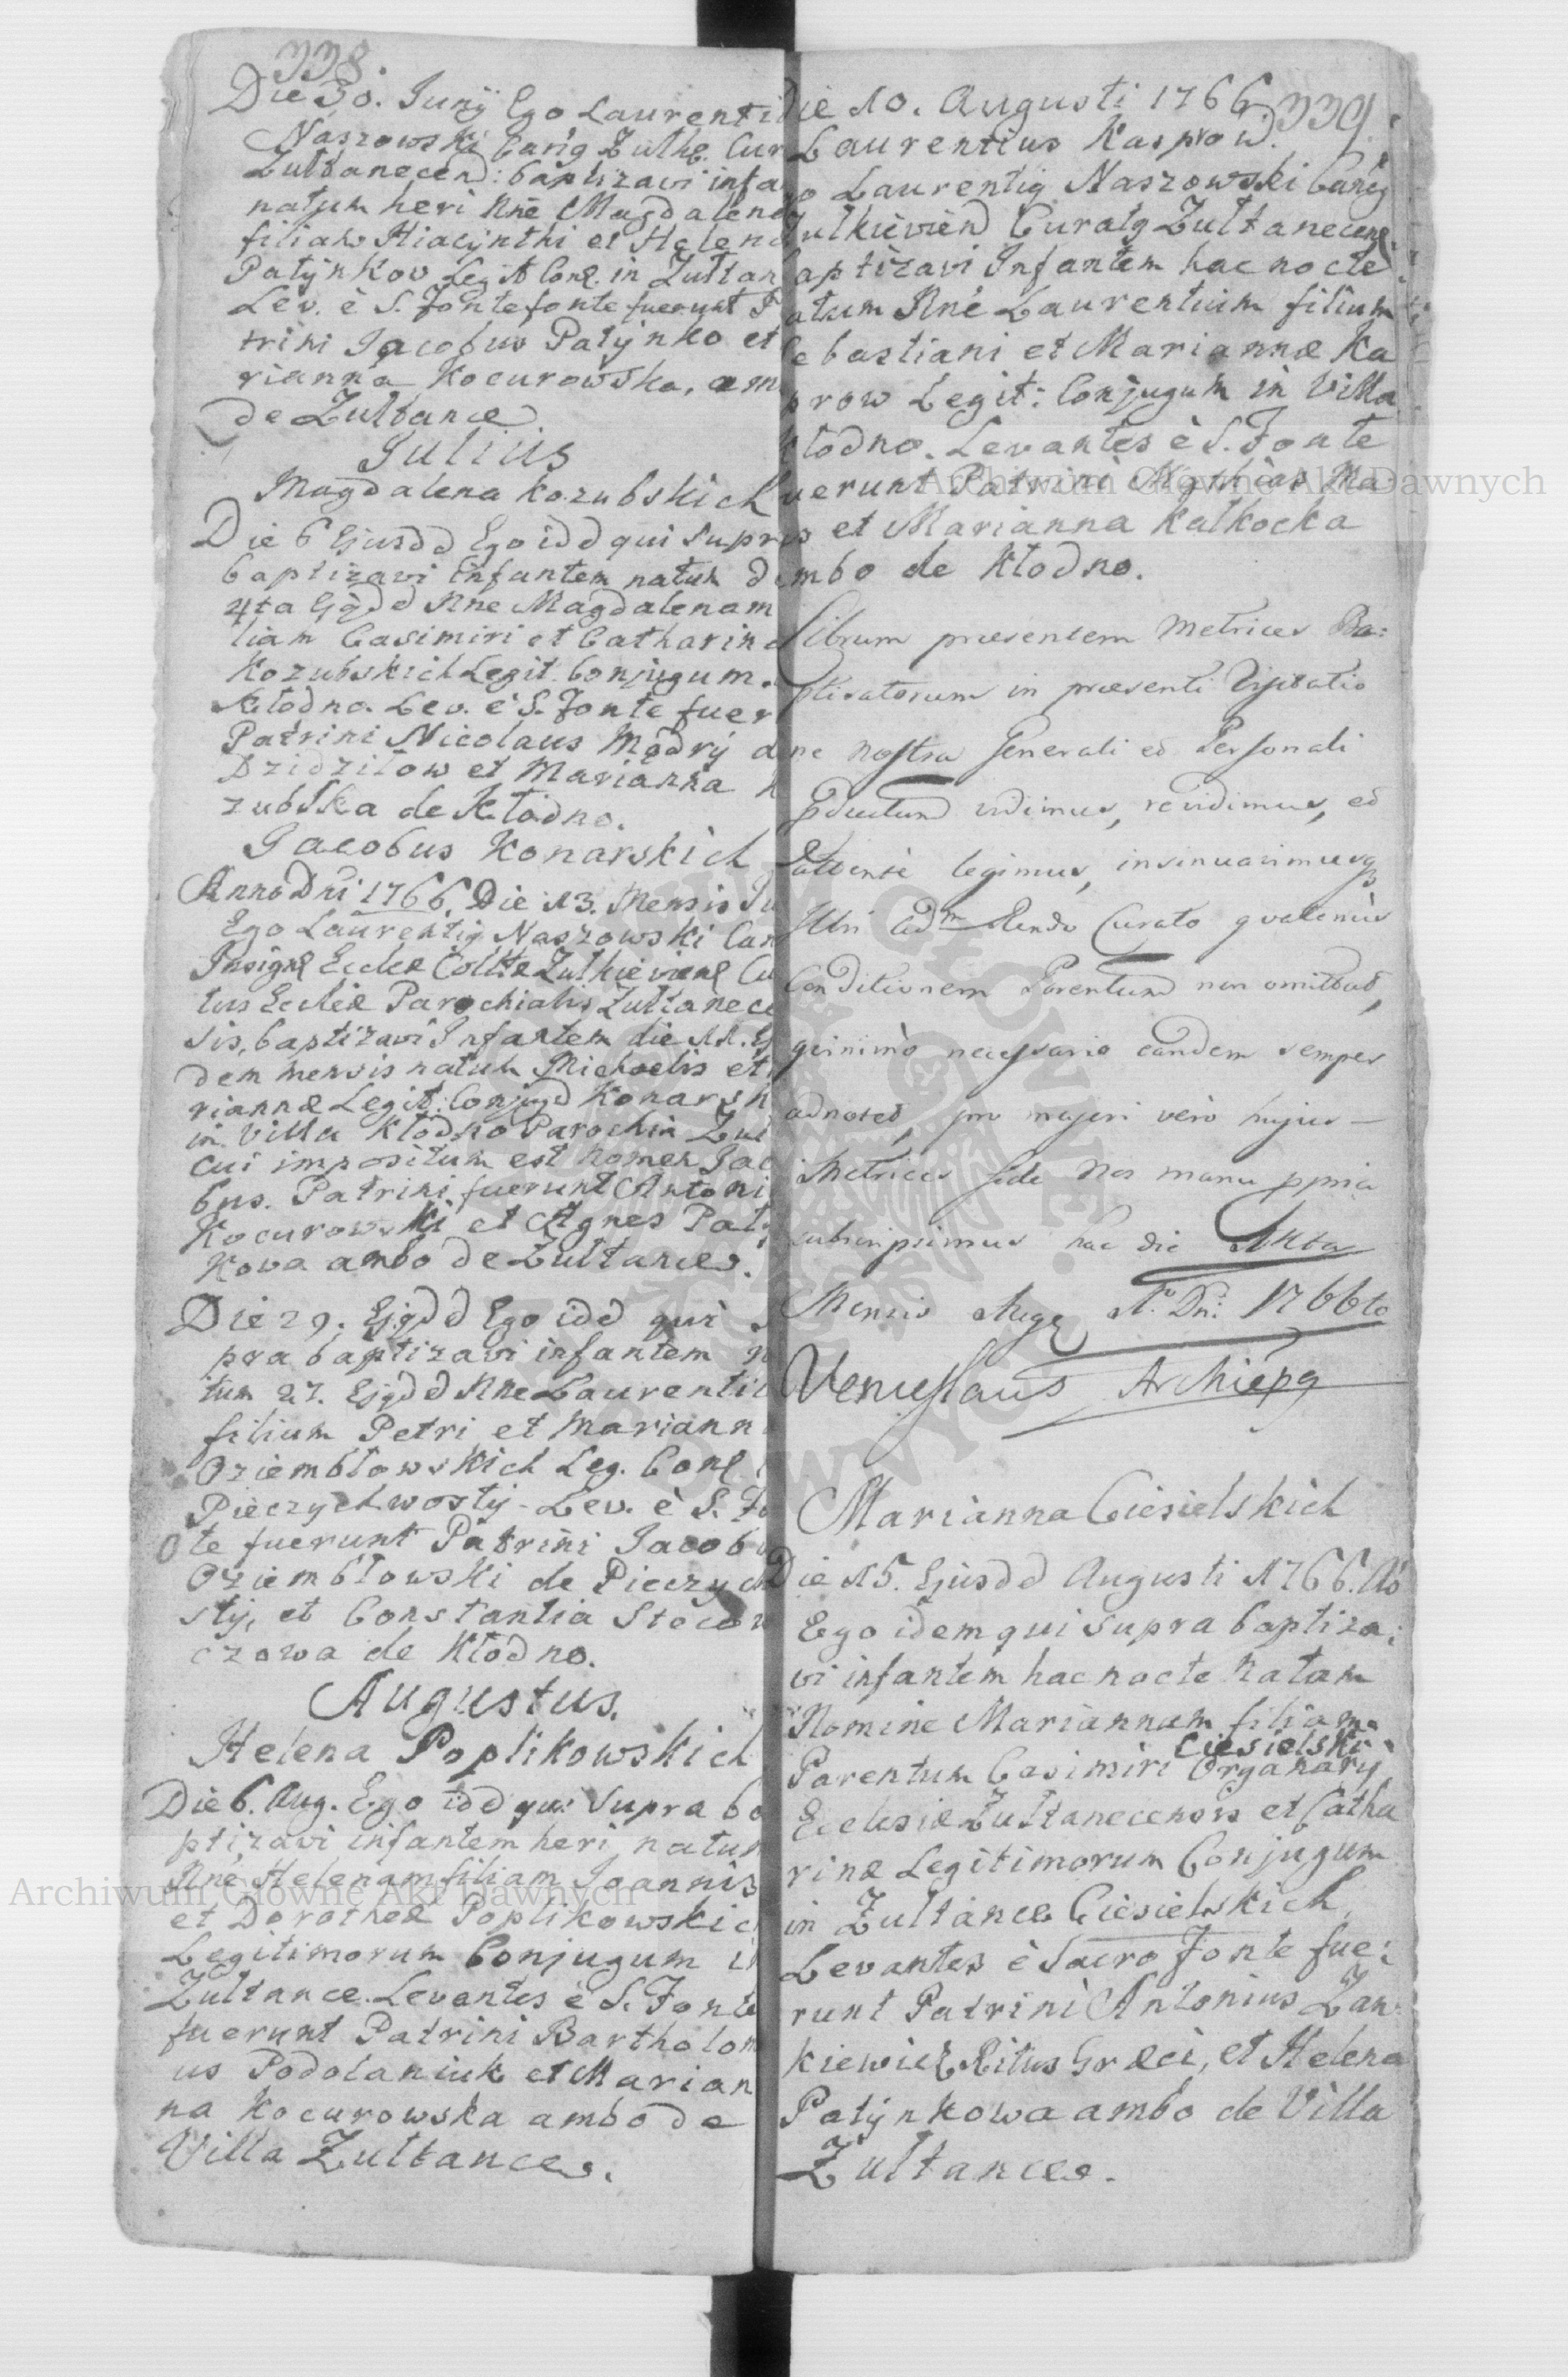 338.
Die 30. Junij Ego Laurenti
Naszowski Canig Zulhe. Cur
Zultanecen: baptizavi infa
natum heri Nne Magdalena
filiam Hiacynthi et Helena
Patynkow Legit Conl. in Zultan
Lev. è S. Fonte fonte fuerunt P
trini Jacobus Patynko et
rianna Kocurowska, am
de Zultance
Julius
Magdalena Kozubskich
Die 6 Ejusdd Ego idd qui Supra
baptizavi Infantem natum d
4ta Ejgdd Nne Magdalenam
liam Casimiri et Catharina
Kozubskich Legit. Conjugum.
Kłodno. Lev. è S. Fonte fuer
Patrini Nicolaus Modry
Dzidziłow et Marianna
zubska de Kłodno.
Jacobus Konarskich
Anno Dni 1766. Die 13. Mensis Ju
Ego Laurentig Naszowski Can
Insignl Eccleae Colltae Zulkievienl Cu
tus Eccleiae Parochialis Zultanece
sis, baptizavi Infantem die 11. Ej
dem mensis natum Michaelis et
riannae Legit: Conjugd Konarsk
in Villa Kłodno Parochia Zul
cui impositum est nomen Jac
bus. Patrini fuerunt Antoni
Kocurowski et Agnes Paty
kowa ambo de Zultance.
Die 29. Ejgdd Ego idd qui S
pra baptizavi infantem n
tum 27. Ejgdd Nne Laurenti
filium Petri et Mariann
Oziembłowskich Leg. Conl
Pieczychwosty - Lev. è S. Fo
te fuerunt Patrini Jacobu
Oziembłowski de Pieczych
sty, et Constantia Stocow
czowa de Kłodno.
Augustus.
Helena Poplikowskich
Die 6. Aug. Ego idd qui Supra ba
ptizavi infantem heri natum
Nne Helenam filiam Joannis
et Dorotheae Poplikowskic
Legitimorum Conjugum in
Zultance. Levantes è S. Fonte
fuerunt Patrini Bartholom
us Podolaniuk et Marian
na Kocurowska ambo de
Villa Zultance.
339.
Die 10. Augusti 1766
Laurentius Kasprow.
go Laurentig Naszowski Canig
Zulkieviend Curatg Zultanecenl.
aptizavi Infantem hac nocte
atum Nne Laurentium filium
ebastiani et Mariannae Ka
prow Legit: Conjugum in Villa
Kłodno. Levantes è S. Fonte
uerunt Patrini Mathias Ma
us et Marianna Kałkocka
ambo de Kłodno.
Librum praesentem Metrices Ba:
ptizatorum in praesenti Visitatio
ne nostra Generali et Personali
pductum vidimus, revidimus, et
attente legimus, insinuavimusq
Illri Adm Rendo Curato quatenus
Conditionem Parentum non omittat,
quinimo necessario eandem semper
adnotet, pro majori vero hujus
Metrices fide Nos manu ppria
subscripsimus hac die
Mensis Augl Ao Dni 1766to
Venceslaus Archiepg
Marianna Ciesielskich
Die 15. Ejusdd Augusti 1766. Ao
Ego idem qui supra baptiza:
vi infantem hac nocte Natam
Nomine Mariannam filiam
Ciesielski
Parentum Casimiri Organarij
Ecclesiae Zultanecensis et Catha
rinae Legitimorum Conjugum
in Zultance Ciesielskich,
Levantes è Sacro Fonte fue:
runt Patrini Antonius Zan
kiewicz Ritus Graeci, et Helena
Patynkowa ambo de Villa
Zultance.
Archiwum Główne Akt Dawnych
Archiwum Główne Akt Dawnych